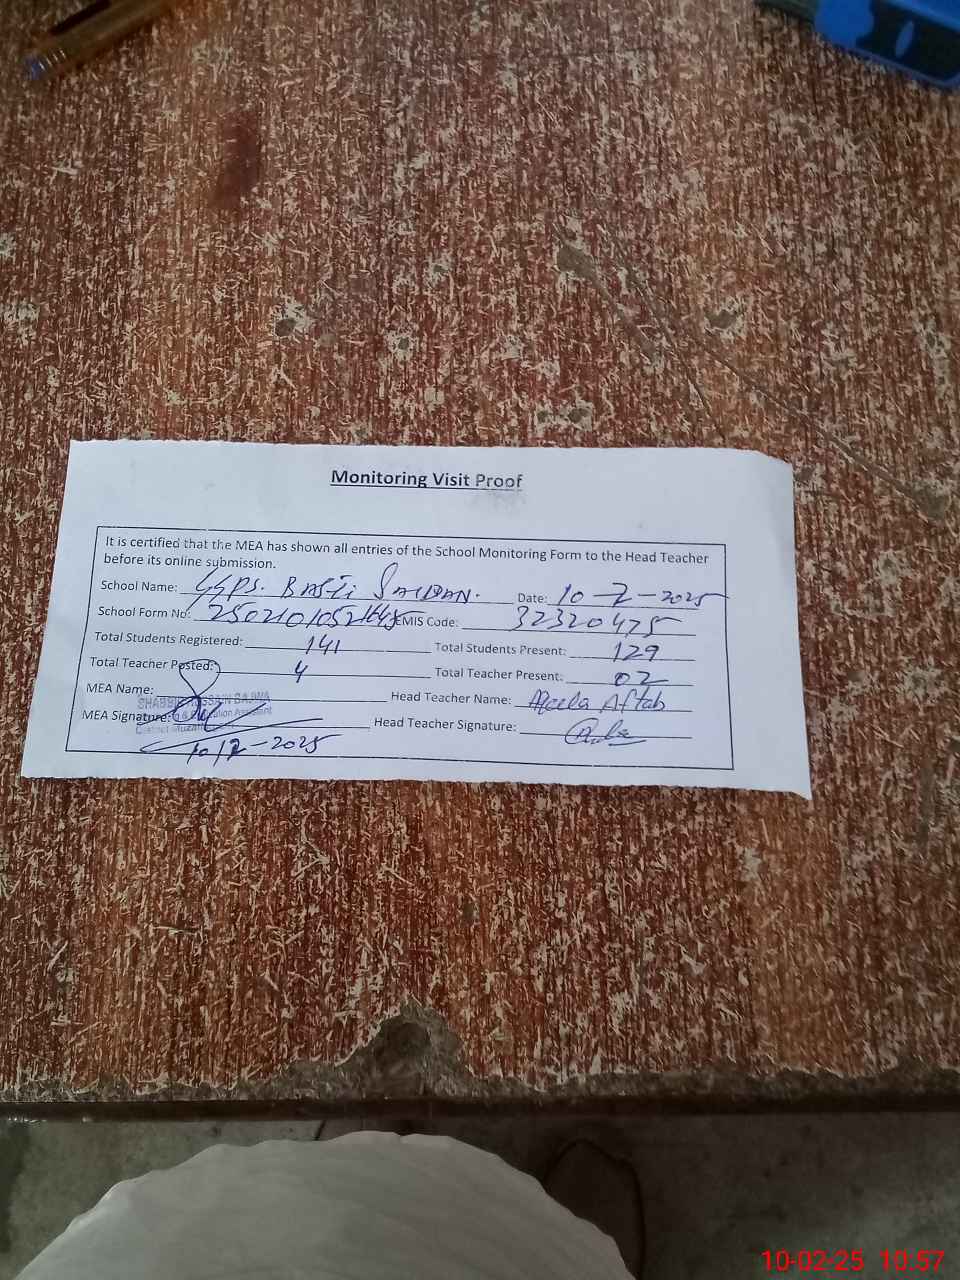 Monitoring Visit Proof
It is certified that the MEA has shown all entries of the School Monitoring Form to the Head Teacher
before its online submission.
School Name: GGPS. BASTI Date: 10-2-2025
School Form No: EMIS Code: 32320475
Total Students Registered: 141 Total Students Present: 129
Total Teacher Posted: 4 Total Teacher Present: 02
MEA Name: Head Teacher Name: Aftab
MEA Signature: Head Teacher Signature:
10/2-2025
10-02-25 10:57